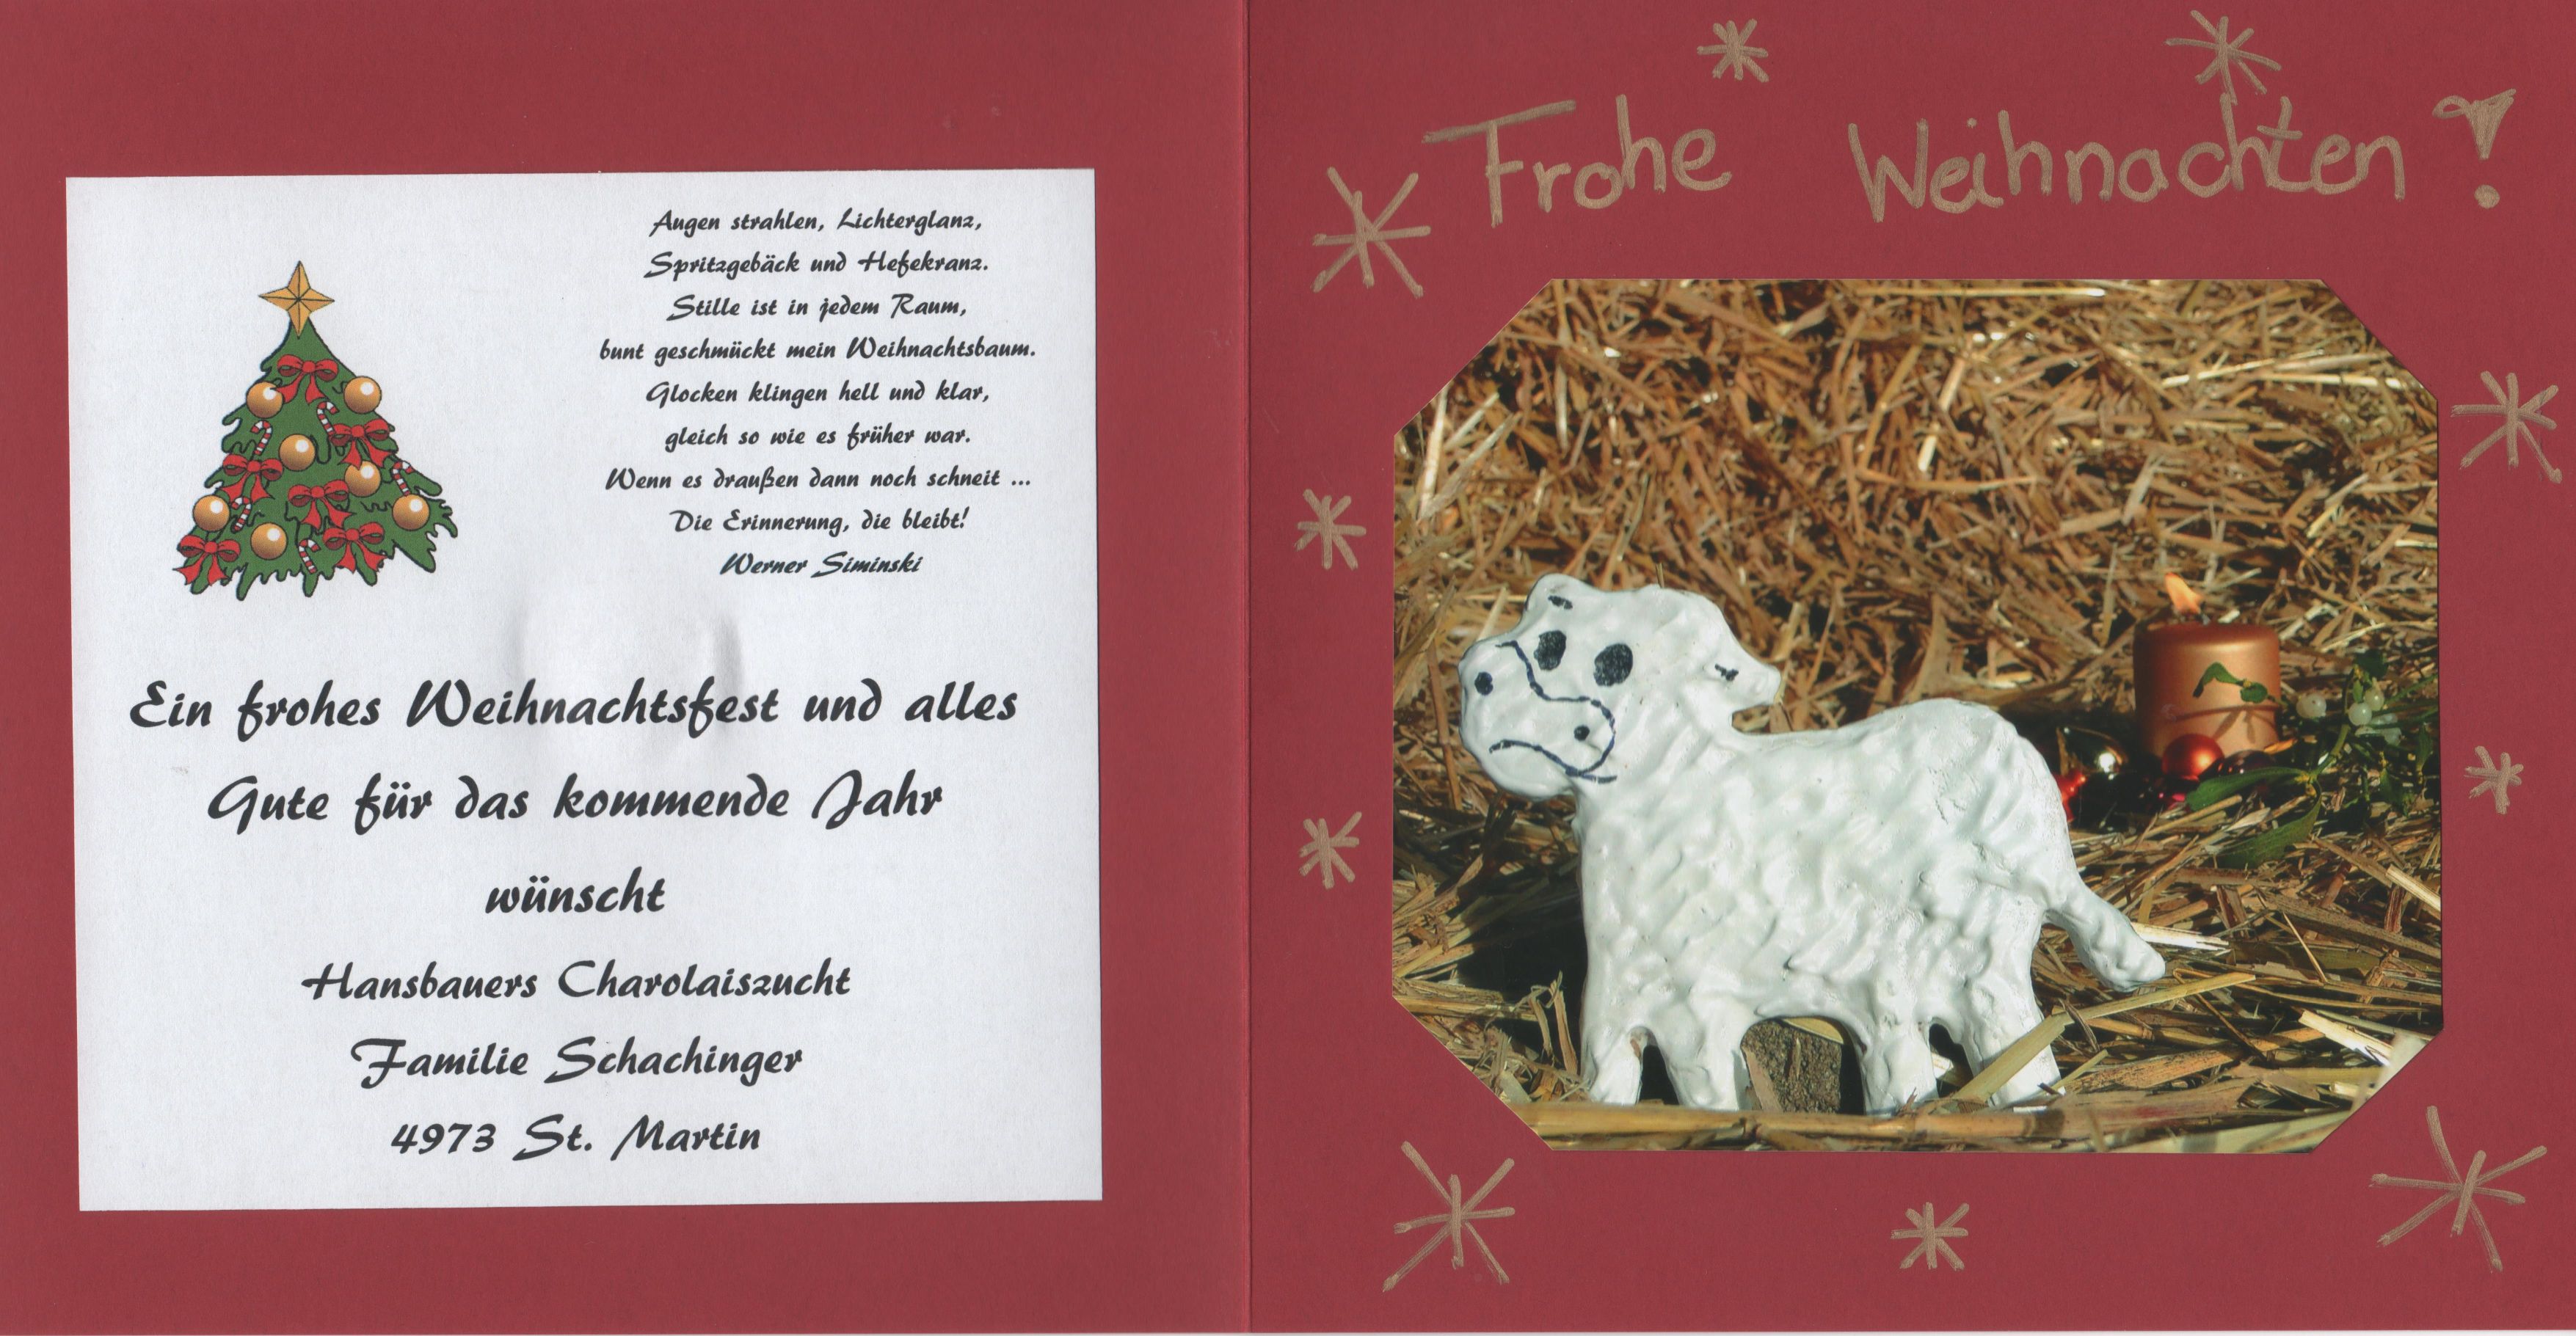 Augen strahlen, Lichterglanz,
Spritzgebäck und Hefekranz.
Stille ist in jedem Raum,
bunt geschmückt mein Weihnachtsbaum.
Glocken klingen hell und klar,
gleich so wie es früher war.
Wenn es draußen dann noch schneit ...
Die Erinnerung, die bleibt!
Werner Siminski
Ein frohes Weihnachtsfest und alles
Gute für das kommende Jahr
wünscht
Hansbauers Charolaiszucht
Familie Schachinger
4973 St. Martin
Frohe Weihnachten!